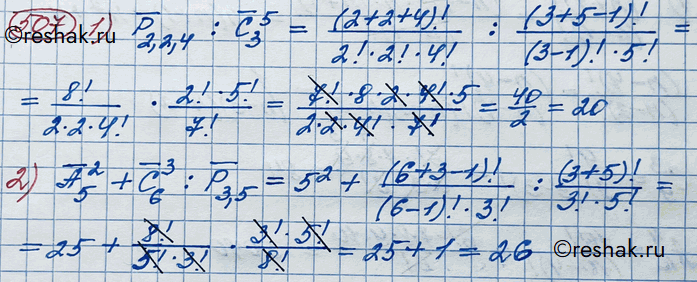 507 1) P̅₂,₂,₄ : C̅₃⁵ = (2+2+4)! / (2!·2!·4!) : (3+5-1)! / ((3-1)!·5!) =
©reshak.ru
= 8! / (2·2·4!) · (2!·5!) / 7! = (7!·8·2·4!·5) / (2·2·4!·7!) = 40/2 = 20
2) A̅₅² + C̅₆³ : P̅₃,₅ = 5² + (6+3-1)! / ((6-1)!·3!) : (3+5)! / (3!·5!) =
= 25 + 8! / (5!·3!) · (3!·5!) / 8! = 25+1 = 26
©reshak.ru